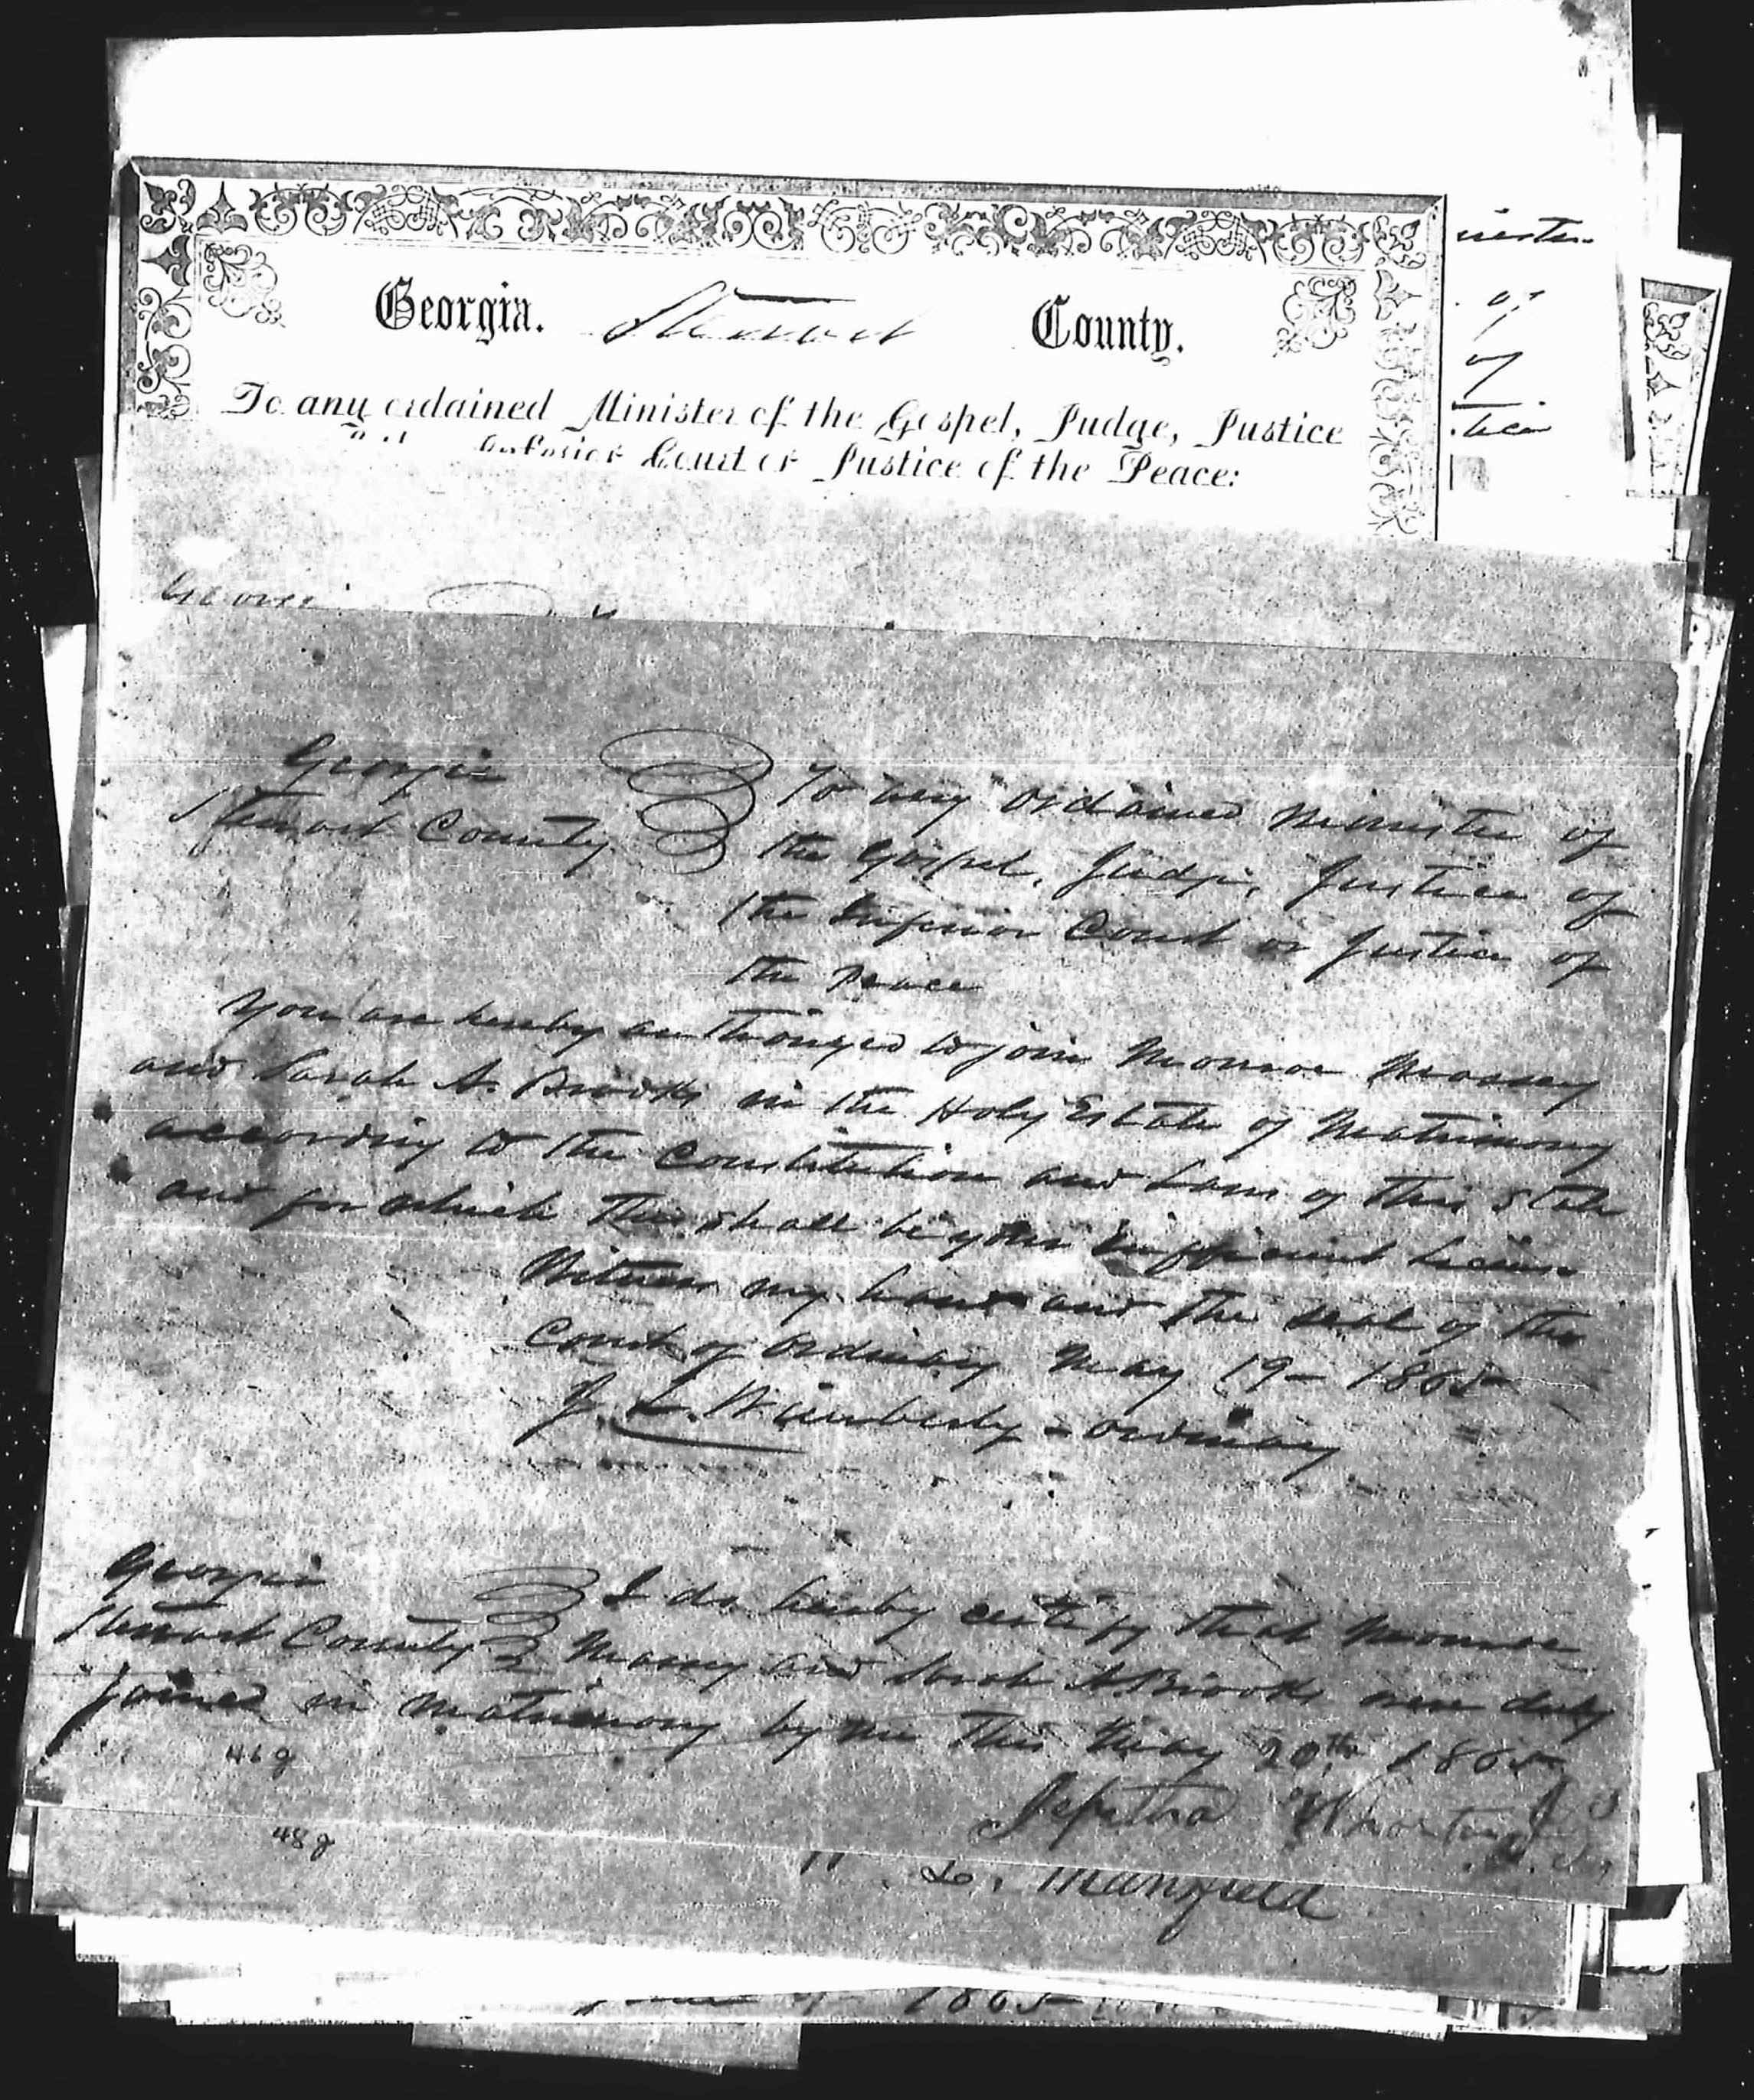 Georgia. Stewart County.
To any ordained Minister of the Gospel, Judge, Justice
Inferior Court or Justice of the Peace:
of
of
Georgia To any ordained Minister of
Stewart County the Gospel, Judge, Justice of
the Inferior Court or Justice of
the Peace
You are hereby authorized to join Monroe Massey
and Sarah A. Brooks in the Holy Estate of Matrimony
according to the Constitution and Laws of this State
and for which this shall be your sufficient License
Witness my hand and the seal of the
Court of Ordinary May 19 - 1865
J. L. Wimberly - Ordinary
Georgia I do hereby certify that Monroe
Stewart County Massey and Sarah A Brooks were duly
joined in matrimony by me this May 20th 1865
Jeptha Wharton
46g
48g
Manfield
1865